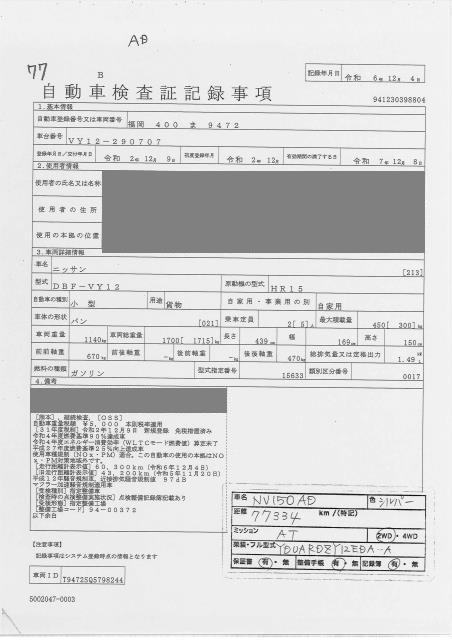 AD
77
B
自動車検査証記録事項
記録年月日 令和 6年 12月 4日
941230398804
1.基本情報
自動車登録番号又は車両番号 福岡 400 ま 9472
車台番号 VY12-290707
登録年月日/交付年月日 令和 2年 12月 9日 初度登録年月 令和 2年 12月 有効期間の満了する日 令和 7年 12月 8日
2.使用者情報
使用者の氏名又は名称
使用者の住所
使用の本拠の位置
3.車両詳細情報
車名 ニッサン [213]
型式 DBF-VY12 原動機の型式 HR15
自動車の種別 小型 用途 貨物 自家用・事業用の別 自家用
車体の形状 バン [021] 乗車定員 2[ 5]人 最大積載量 450[ 300]kg
車両重量 1140kg 車両総重量 1700[ 1715]kg 長さ 439cm 幅 169cm 高さ 150cm
前前軸重 670kg 前後軸重 -kg 後前軸重 -kg 後後軸重 470kg 総排気量又は定格出力 1.49
燃料の種類 ガソリン 型式指定番号 15633 類別区分番号 0017
4.備考
[熊本],継続検査,[OSS]
自動車重量税額 ¥5,000 本則税率適用
[31年度税制]令和2年12月9日 新規登録 免税措置済み
令和4年度燃費基準90%達成車
令和4年度エネルギー消費効率(WLTCモード燃費値)算定未了
平成27年度燃費基準25%向上達成車
使用車種規制(NOx・PM)適合,この自動車の使用の本拠はNO
x・PM対策地域外です。
[走行距離計表示値]60,300km(令和6年12月4日)
[旧走行距離計表示値]43,200km(令和5年11月20日)
平成12年騒音規制車,近接排気騒音規制値 97dB
マフラー加速騒音規制適用車
[受検種別]指定整備車
[検査時の点検整備実施状況]点検整備記録簿記載あり
[受検形態]指定整備工場
[整備工場コード]94-00372
以下余白
車名 NV150AD 色 シルバー
距離 77334 km/(特記)
ミッション AT 2WD・4WD
架装・フル型式
保証書 有・無 整備手帳 有・無 記録簿 有・無
[注意事項]
記録事項はシステム登録時点の情報となります
車両ID T9472SQ5798244
5002047-0003